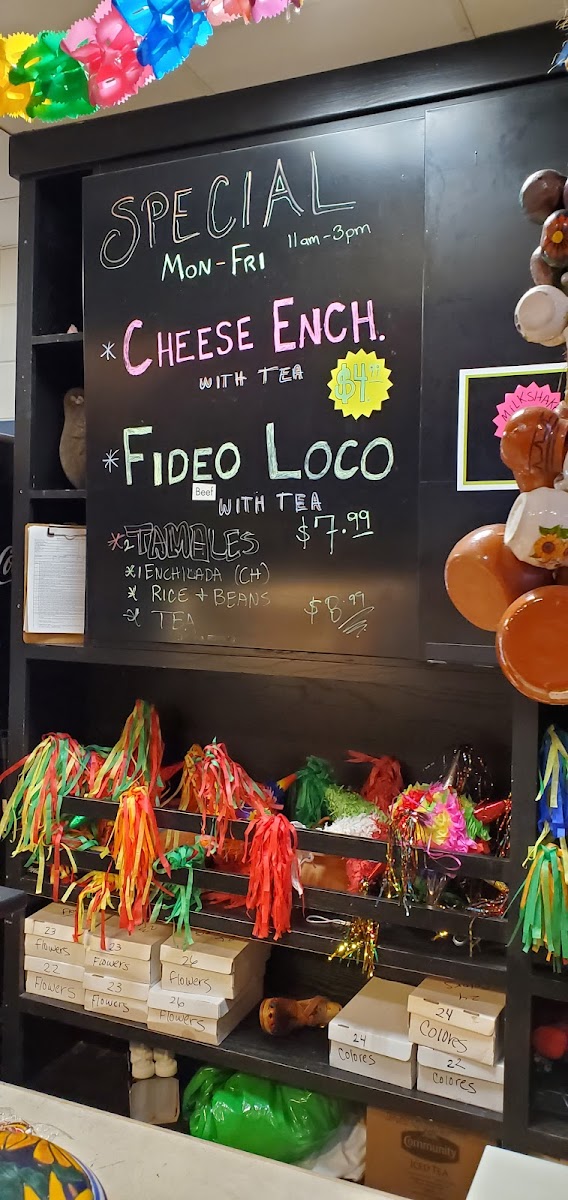 SPECIAL
MON-FRI 11am-3pm
* CHEESE ENCH.
WITH TEA
* FIDEO LOCO
Beef
WITH TEA
*2 TAMALES $7.99
* 1 ENCHILADA (CH)
* RICE + BEANS
* TEA $8.99
MILKSHAK
23
Flowers
22
Flowers
23
Flowers
23
Flowers
26
Flowers
26
Flowers
24
Colores
24
Colores
22
Colores
Community
ICED TEA